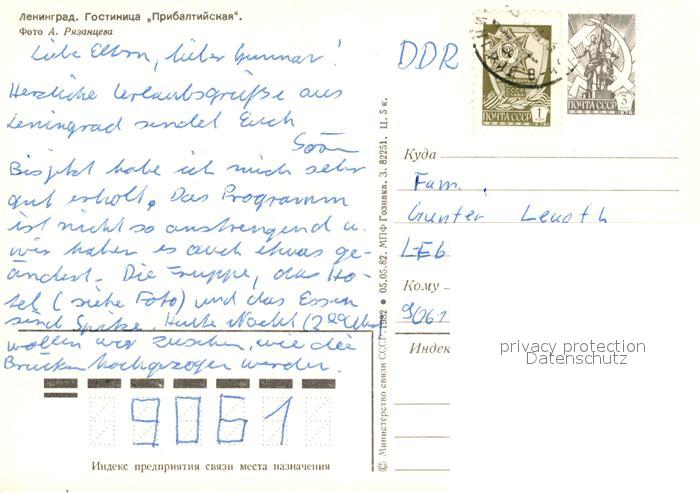 Ленинград. Гостиница „Прибалтийская".
Фото А. Рязанцева
Liebe Eltern, lieber Gunnar!
Herzliche Urlaubsgrüße aus
Leningrad sendet Euch
Bisjetzt habe ich mich sehr
gut erholt. Das Programm
ist nicht so anstrengend u.
wir haben es auch etwas ge-
ändert. Die Gruppe, das Ho-
tel (siehe Foto) und das Essen
sind Spitze. Heute Nacht (2 00 Uhr)
wollen wir zusehen, wie die
Brücken hochgezogen werden.
9061
Индекс предприятия связи места назначения
© Министерство связи СССР. 1982 ● 05.05.82. МПФ Гознака. З. 82251. Ц. 5 к.
DDR
ПОЧТА СССР 1
ПОЧТА СССР 3
Куда
Fam.
Gunter
Кому
9061
Индек
privacy protection
Datenschutz